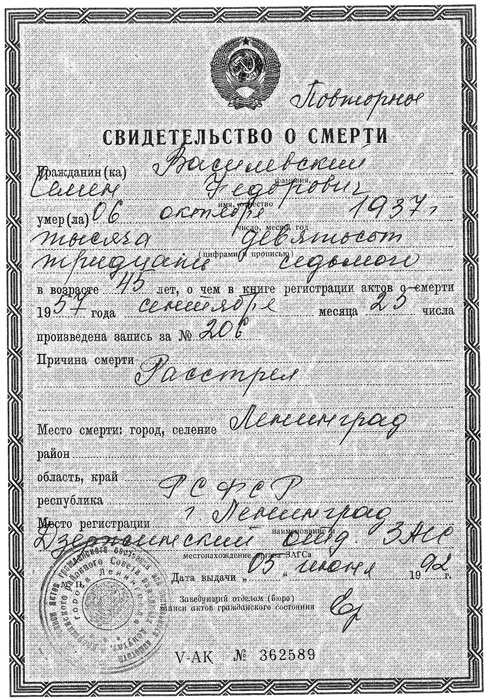 Повторное
СВИДЕТЕЛЬСТВО О СМЕРТИ
Гражданин(ка) Василевский
фамилия
Семен Федорович
имя, отчество
умер(ла) 06 октября 1937 г
число, месяц, год
тысяча девятьсот
(цифрами и прописью)
тридцать седьмого
в возрасте 45 лет, о чем в книге регистрации актов о смерти
1957 года сентября месяца 25 числа
произведена запись за № 206
Причина смерти
Расстрел
Место смерти: город, селение Ленинград
район
область, край
республика РСФСР
Место регистрации г Ленинград
наименование и
Дзержинский отд. ЗАГС
местонахождение органа ЗАГСа
Дата выдачи „ 05 „ июня 1992 г.
Заведующий отделом (бюро)
записи актов гражданского состояния
V-АК № 362589